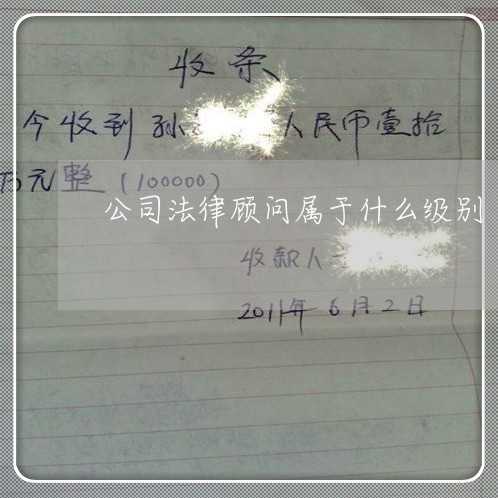 收条
今收到孙人民币壹拾
万元整(100000)
公司法律顾问属于什么级别
收款人
2011年6月2日